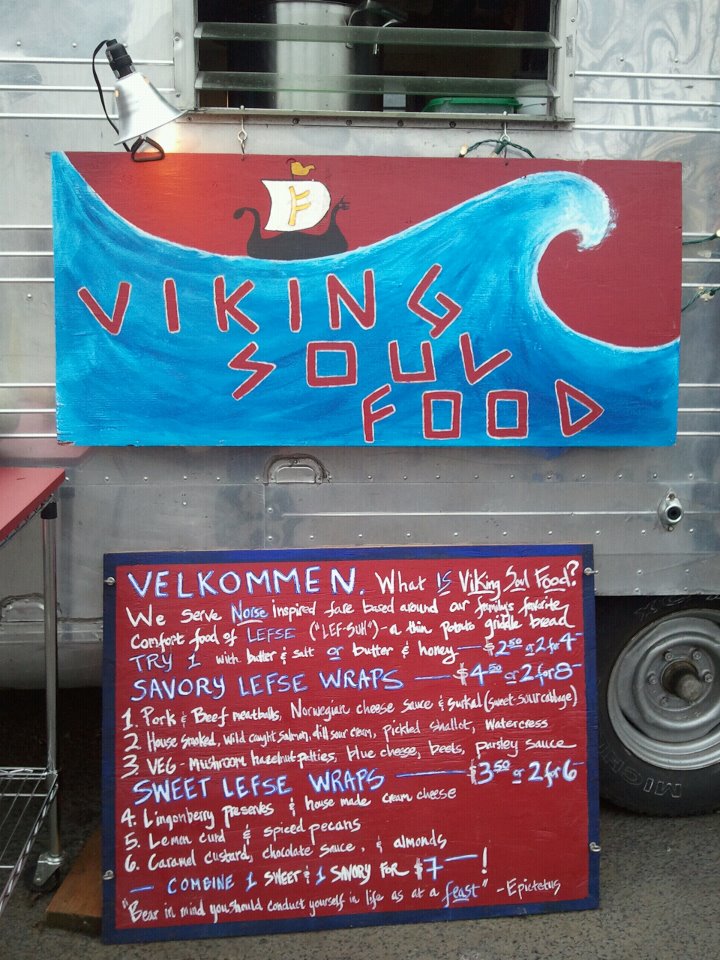 VIKING
SOUL
FOOD
VELKOMMEN. What IS Viking Soul Food?
We serve Noise inspired fare based around our family's favorite
comfort food of LEFSE ("LEF-SUH") - a thin potato griddle bread
TRY 1 with butter & salt or butter & honey — $2.50 or 2 for 4-
SAVORY LEFSE WRAPS — $4.50 or 2 for 8-
1. Pork & Beef meatballs, Norwegian cheese sauce & surkal (sweet-sour cabbage)
2 House smoked, wild caught salmon, dill sour cream, pickled shallot, watercress
3. VEG - Mushroom hazelnut patties, blue cheese, beets, parsley sauce
SWEET LEFSE WRAPS — $3.50 or 2 for 6-
4. Lingonberry preserves & house made cream cheese
5. Lemon curd & spiced pecans
6. Caramel custard, chocolate sauce, & almonds
— COMBINE 1 SWEET & 1 SAVORY FOR $7 — !
"Bear in mind you should conduct yourself in life as at a feast" - Epictetus